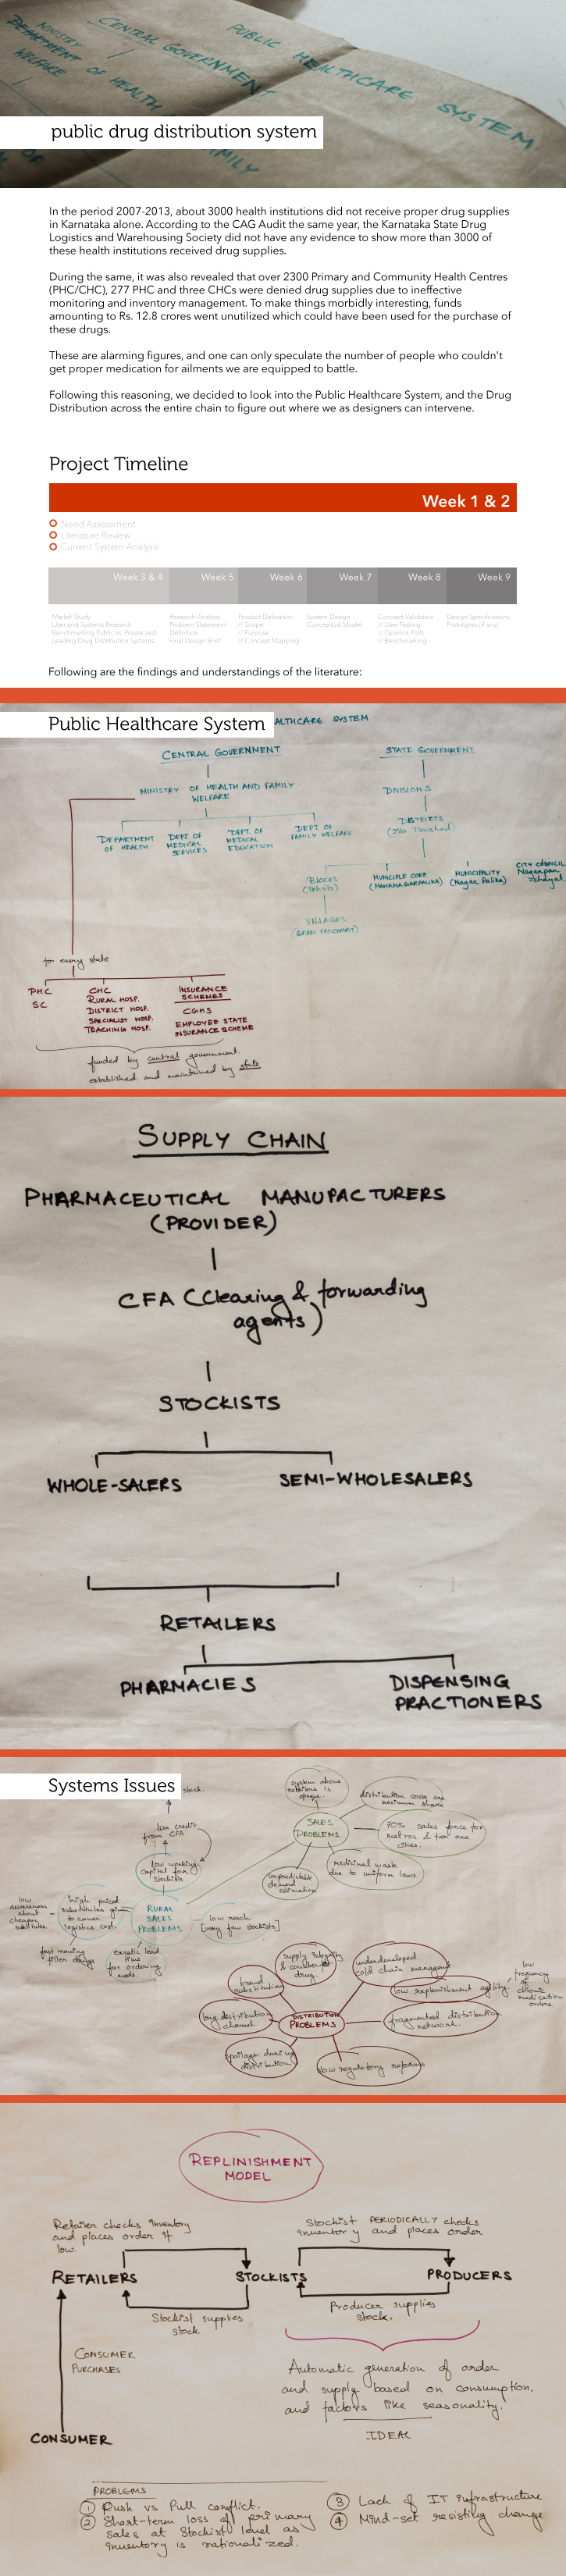 MINISTRY
DEPARTMENT OF HEALTH
WELFARE
CENTRAL GOVERNMENT
PUBLIC HEALTHCARE SYSTEM
FAMILY
OF
public drug distribution system
In the period 2007-2013, about 3000 health institutions did not receive proper drug supplies
in Karnataka alone. According to the CAG Audit the same year, the Karnataka State Drug
Logistics and Warehousing Society did not have any evidence to show more than 3000 of
these health institutions received drug supplies.
During the same, it was also revealed that over 2300 Primary and Community Health Centres
(PHC/CHC), 277 PHC and three CHCs were denied drug supplies due to ineffective
monitoring and inventory management. To make things morbidly interesting, funds
amounting to Rs. 12.8 crores went unutilized which could have been used for the purchase of
these drugs.
These are alarming figures, and one can only speculate the number of people who couldn't
get proper medication for ailments we are equipped to battle.
Following this reasoning, we decided to look into the Public Healthcare System, and the Drug
Distribution across the entire chain to figure out where we as designers can intervene.
Project Timeline
Week 1 & 2
Need Assessment
Literature Review
Current System Analysis
Week 3 & 4
Week 5
Week 6
Week 7
Week 8
Week 9
Market Study
User and Systems Research
Benchmarking Public vs. Private and
Leading Drug Distribution Systems
Research Analysis
Problem Statement
Definition
Final Design Brief
Product Definition
// Scope
// Purpose
// Concept Mapping
System Design -
Conceptual Model
Concept Validation
// User Testing
// Opinion Polls
// Benchmarking
Design Specifications
Prototypes (if any)
Following are the findings and understandings of the literature:
Public Healthcare System
ALTHCARE SYSTEM
CENTRAL GOVERNMENT
MINISTRY OF HEALTH AND FAMILY
WELFARE
DEPARTMENT
OF HEALTH
DEPT OF
MEDICAL
SERVICES
DEPT. OF
MEDICAL
EDUCATION
DEPT OF
FAMILY WELFARE
STATE GOVERNMENT
DIVISIONS
DISTRICTS
(Zilla Parishad)
BLOCKS
(Tehsils)
MUNICIPLE CORP.
(MAHANAGARPALIKA)
MUNICIPALITY
(Nagar Palika)
CITY COUNCIL
VILLAGES
(GRAM PANCHAYAT)
for every state
PHC
SC
CHC
RURAL HOSP.
DISTRICT HOSP.
SPECIALIST HOSP.
TEACHING HOSP.
INSURANCE
SCHEMES
CGHS
EMPLOYEE STATE
INSURANCE SCHEME
funded by central government.
established and maintained by state
SUPPLY CHAIN
PHARMACEUTICAL MANUFACTURERS
(PROVIDER)
CFA (Clearing & forwarding
agents)
STOCKISTS
WHOLE-SALERS
SEMI-WHOLESALERS
RETAILERS
PHARMACIES
DISPENSING
PRACTIONERS
Systems Issues
stock.
less credit
from CFA
low working
capital for
stockists
RURAL
SALES
PROBLEMS
low
awareness
about
cheaper
substitutes
high priced
substitutes given
to cover
logistics cost
fast moving
filler drugs
erratic lead
time
for ordering
meds.
low reach
[very few stockists]
system above
retailers is
opaque
SALES
PROBLEMS
distribution costs are
maximum share
70% sales force for
metros & tier one
cities.
medicinal waste
due to uniform laws
unpredictable
demand
estimation
DISTRIBUTION
PROBLEMS
supply integrity
& counterfeit
drug.
underdeveloped
cold chain managmnt
low replenishment agility
low
frequency
of
chronic
medication
orders.
fragmented distribution
network.
slow regulatory reforms
spoilage during
distribution
long distribution
channel
brand
substitution
REPLINISHMENT
MODEL
Retailer checks inventory
and places order if
low.
Stockist PERIODICALLY checks
inventory and places order
RETAILERS
STOCKISTS
PRODUCERS
Stockist supplies
stock
Producer supplies
stock.
CONSUMER
PURCHASES
Automatic generation of order
and supply based on consumption.
and factors like seasonality.
IDEAL
CONSUMER
PROBLEMS
1 Push vs Pull conflict.
2 Short-term loss of primary
sales at Stockist level as
inventory is rationalized.
3 Lack of IT infrastructure
4 Mind-set resisting change